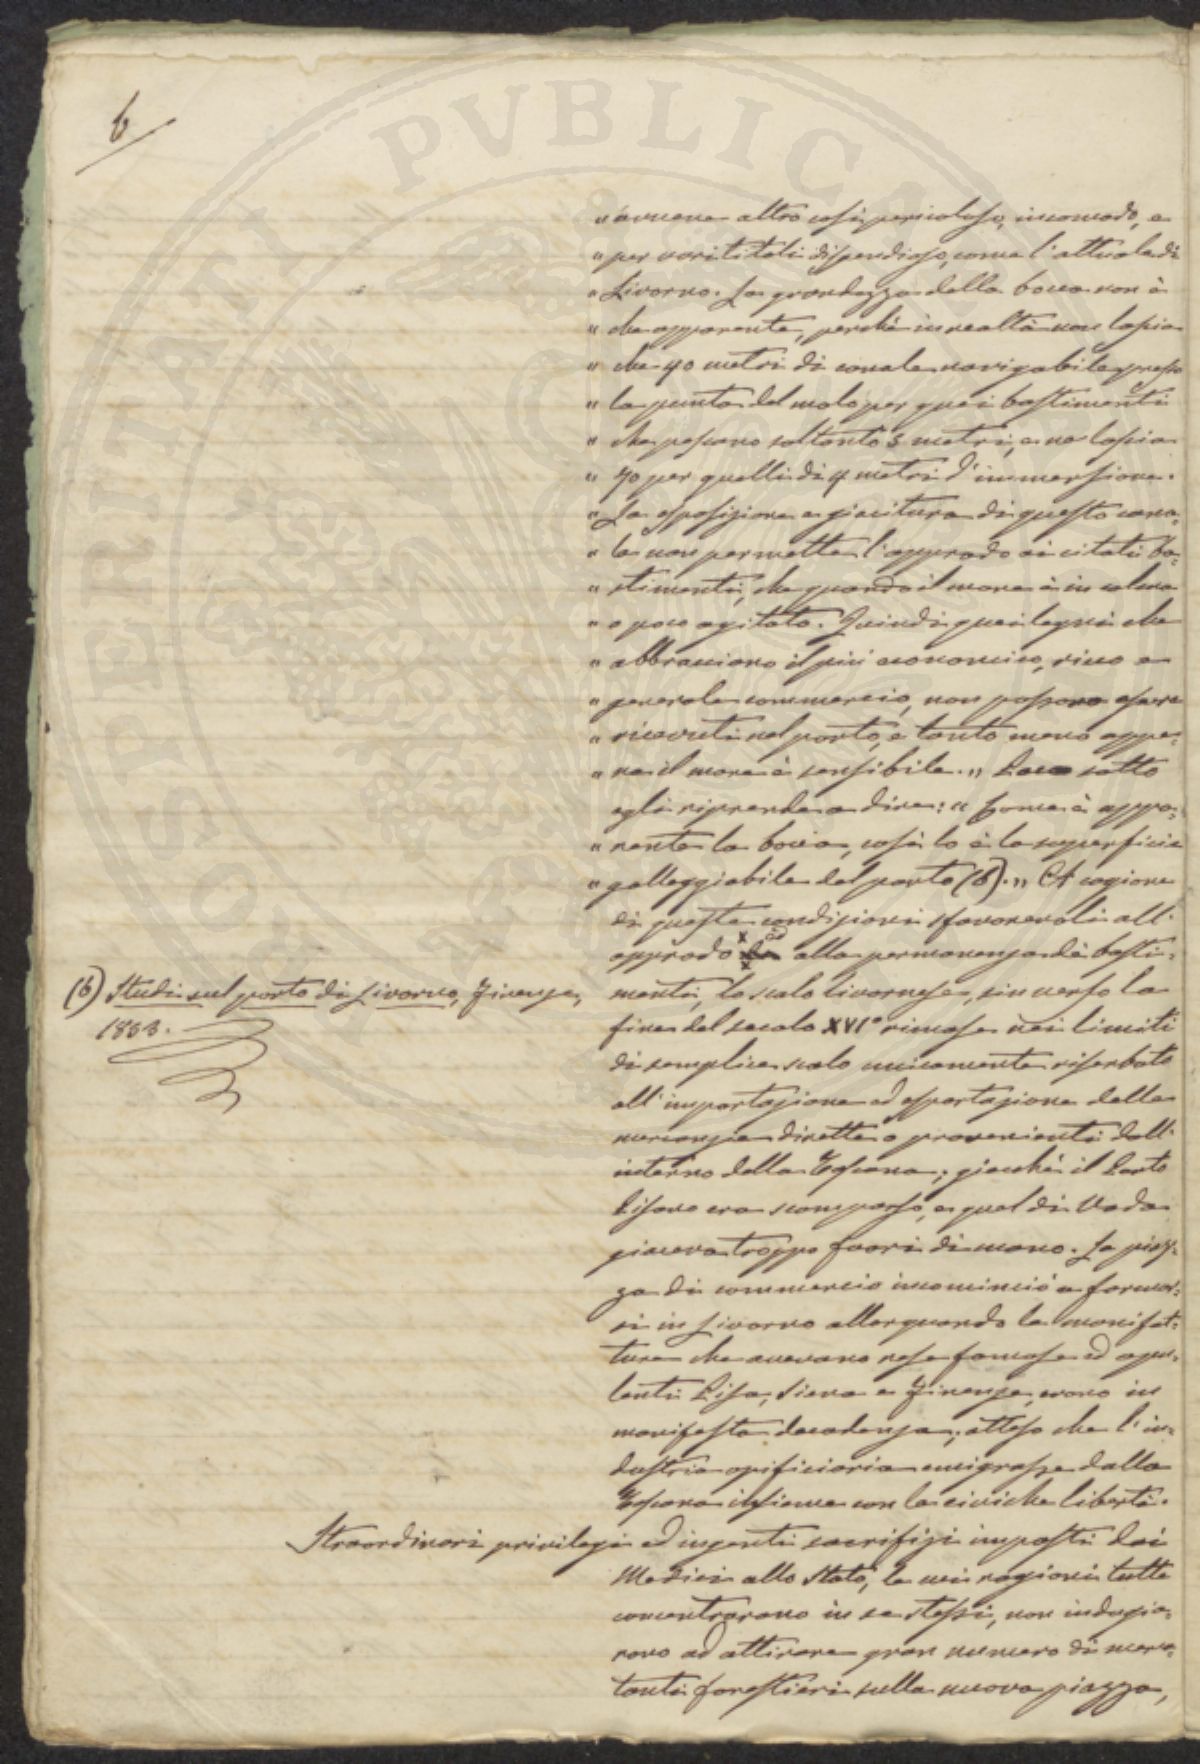 6
" avvene altro così pericoloso, incomodo, e
" per varii titoli dispendioso, come l'attuale di
" Livorno. La grandezza della bocca non è
" che apparente, perchè in realtà non lascia
" che 40 metri di canale navigabile presso
" la punta del molo per quei bastimenti
" che pescano soltanto 3 metri, e ne lascia
" 70 per quelli di 4 metri d'immersione.
" La esposizione e giacitura di questo cana=
" le non permette l'approdo ai citati ba=
" stimenti, che quando il mare è in calma
" o poco agitato. Quindi quei legni che
" abbracciano il più economico, ricco e
" generale commercio, non possono essere
" ricevuti nel porto, e tanto meno appe=
" na il mare è sensibile. " Poco sotto
egli riprende a dire: " Come è appa=
" rente la bocca, così lo è la superficie
" galleggiabile del porto (6). " A cagione
di queste condizioni sfavorevoli all'
approdo ed alla permanenza dei basti=
menti, lo scalo livornese, sin verso la
fine del secolo XVI° rimase nei limiti
di semplice scalo unicamente riserbato
all'importazione ed esportazione delle
mercanzie dirette o provenienti dall'
interno della Toscana; giacchè il Porto
Pisano era scomparso, e quel di Vada
giaceva troppo fuori di mano. La piaz=
za di commercio incominciò a formar=
si in Livorno allorquando le manifat=
ture che avevano rese famose ed opu=
lenti Pisa, Siena e Firenze, erano in
manifesta decadenza; atteso che l'in=
dustria opificiaria emigrasse dalla
Toscana insieme con le civiche libertà.
Straordinari privilegi ed ingenti sacrifizi imposti dai
Medici allo Stato, le cui ragioni tutte
concentrarono in se stessi, non indugia=
rono ad attirare gran numero di merca=
tanti forestieri sulla nuova piazza,
(6) Studi sul porto di Livorno, Firenze,